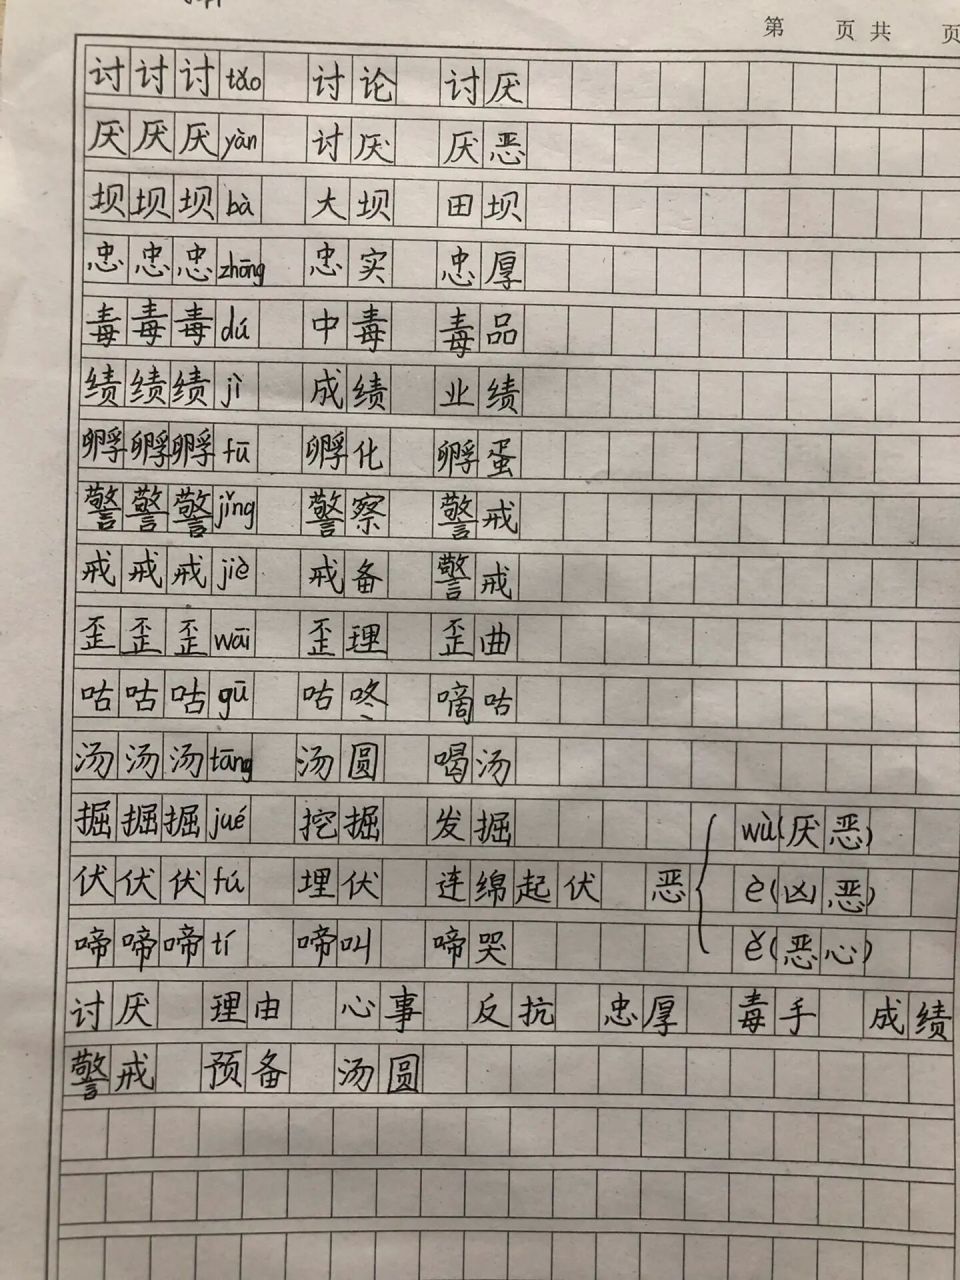 第 页 共 页
讨讨讨 tǎo 讨论 讨厌
厌厌厌 yàn 讨厌 厌恶
坝坝坝 bà 大坝 田坝
忠忠忠 zhōng 忠实 忠厚
毒毒毒 dú 中毒 毒品
绩绩绩 jì 成绩 业绩
孵孵孵 fū 孵化 孵蛋
警警警 jǐng 警察 警戒
戒戒戒 jiè 戒备 警戒
歪歪歪 wāi 歪理 歪曲
咕咕咕 gū 咕咚 嘀咕
汤汤汤 tāng 汤圆 喝汤
掘掘掘 jué 挖掘 发掘 wù(厌恶)
伏伏伏 fú 埋伏 连绵起伏 恶 è(凶恶)
啼啼啼 tí 啼叫 啼哭 ě(恶心)
讨厌 理由 心事 反抗 忠厚 毒手 成绩
警戒 预备 汤圆